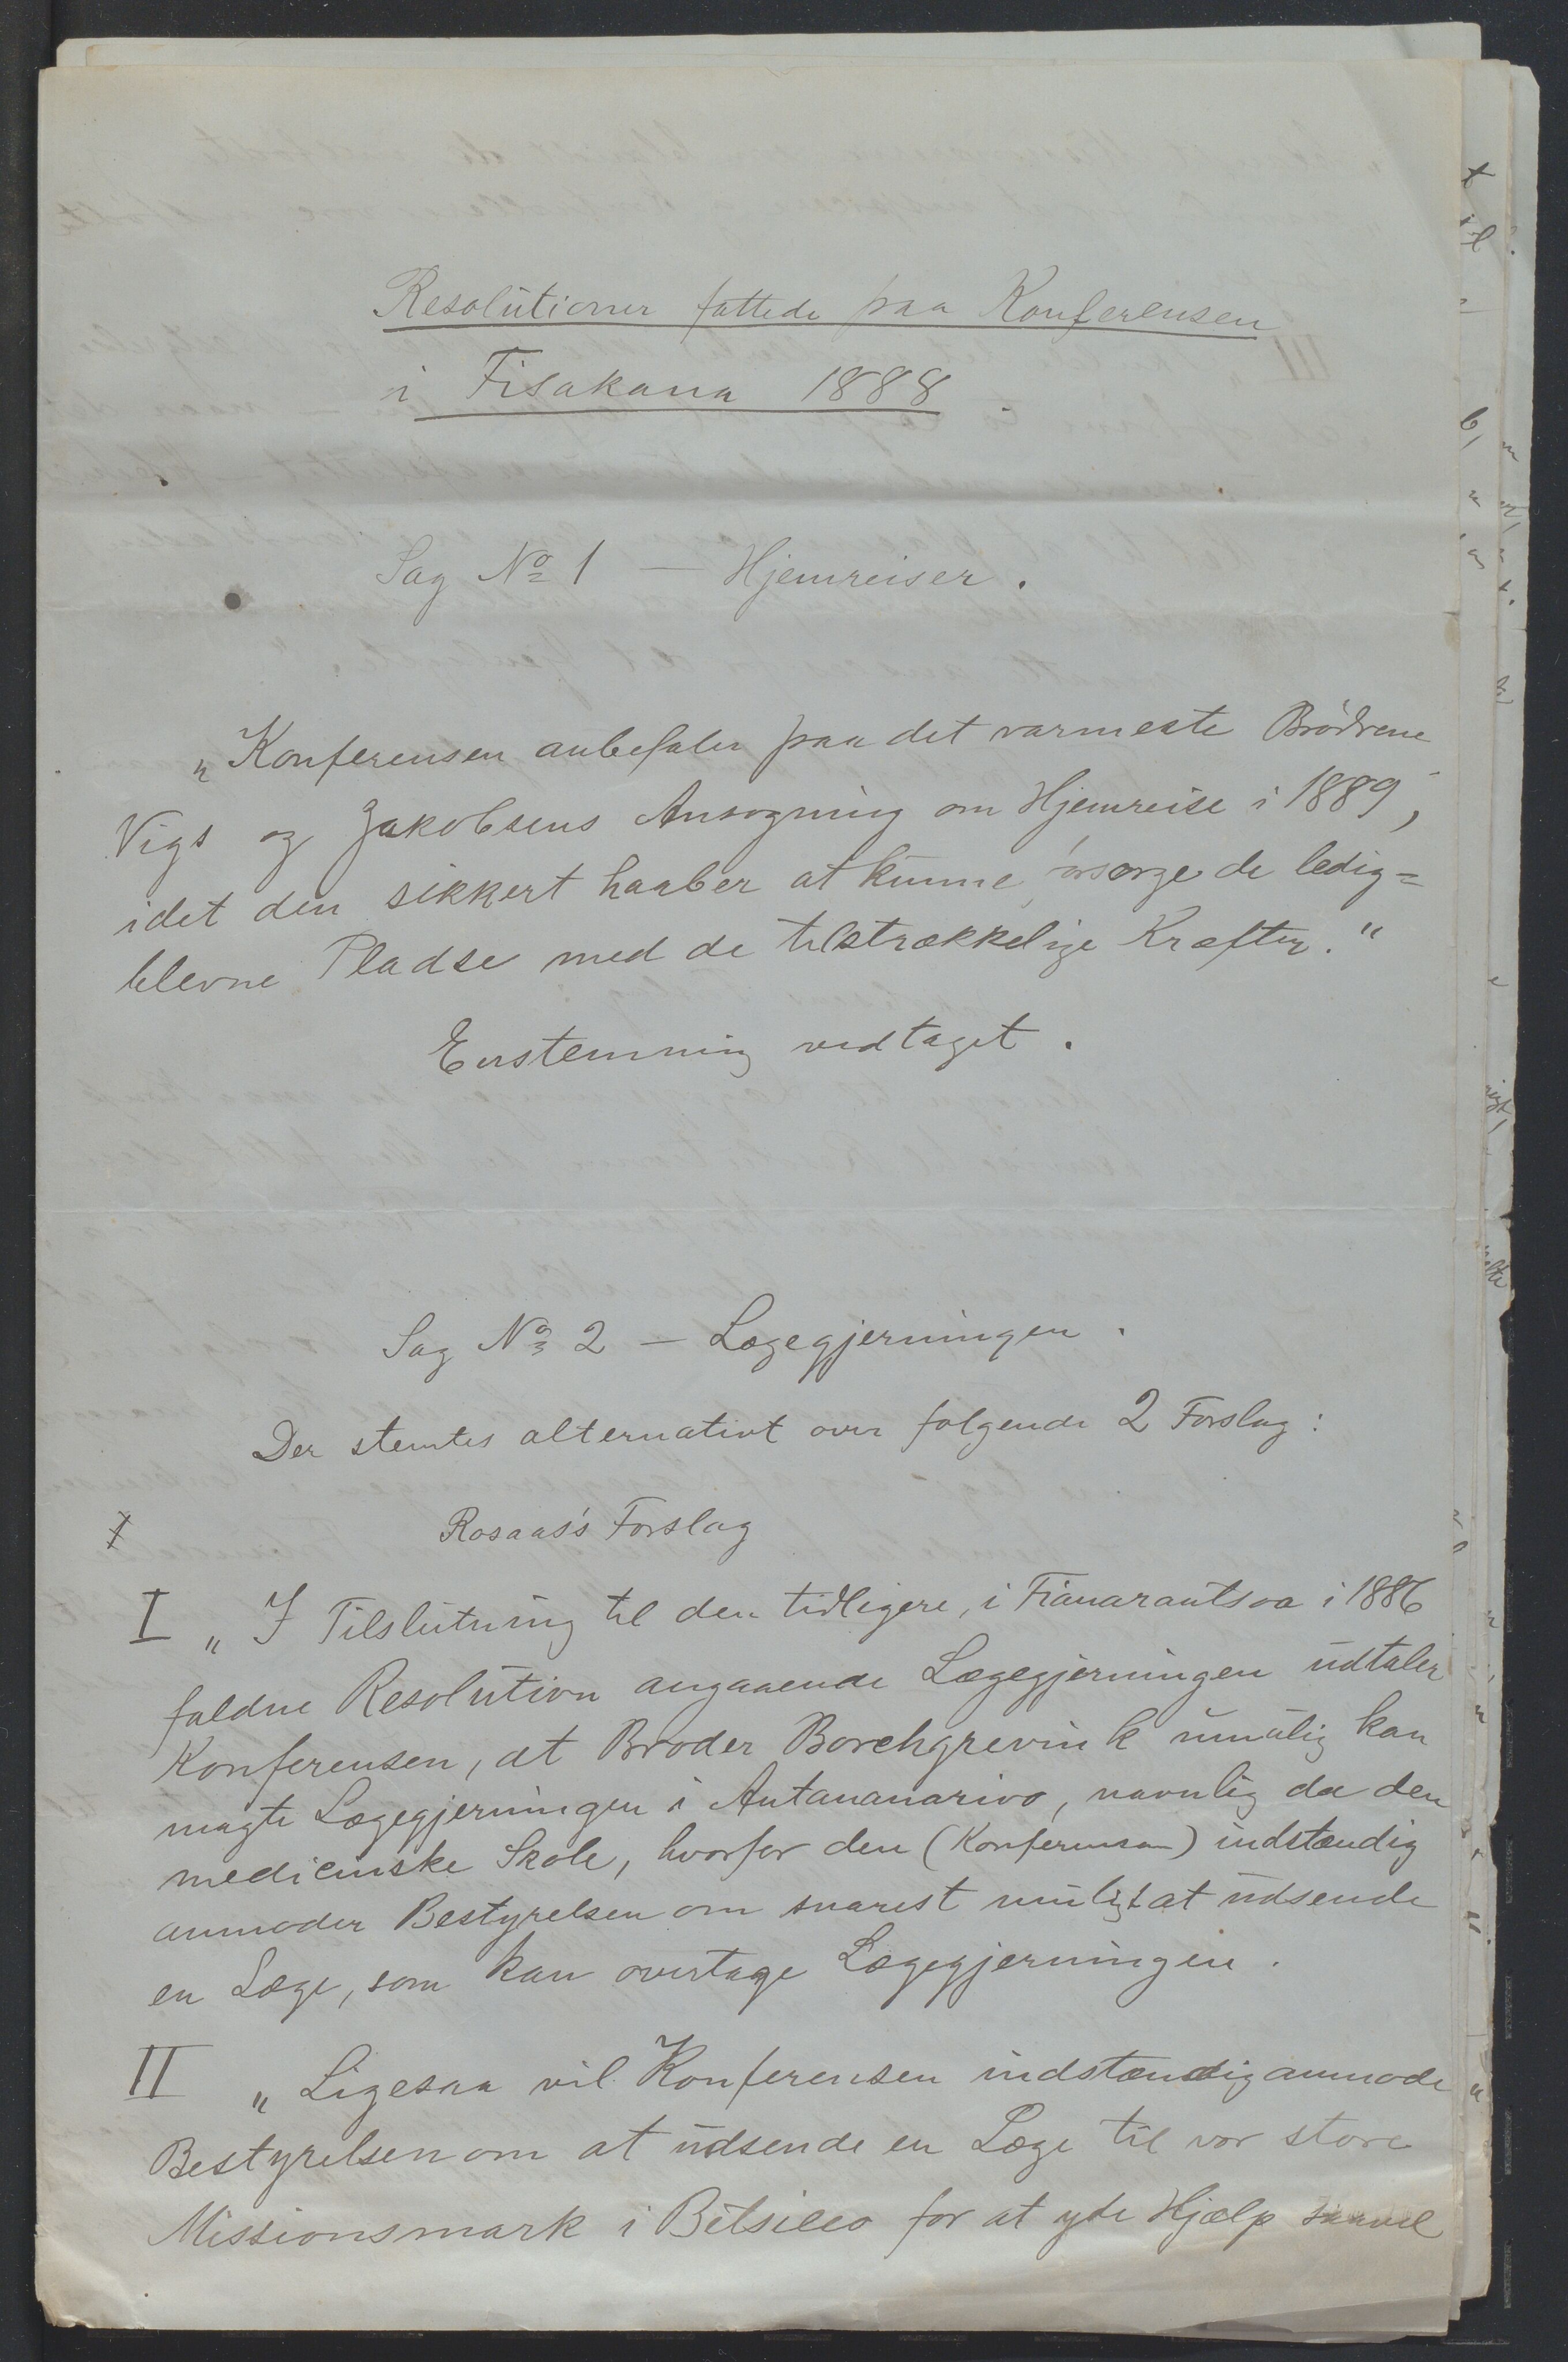 Resolutioner fattede paa Konferensen
i Fisakana 1888.
Sag No 1 — Hjemreiser.
„Konferensen anbefaler paa det varmeste Brødrene
Vigs og Jakobsens Ansøgning om Hjemreise i 1889,
idet den sikkert haaber at kunne forsørge de ledig=
blevne Pladse med de tilstrækkelige Kræfter."
Enstemmig vedtaget.
Sag No 2 — Lægegjerningen.
Der stemtes alternativt over følgende 2 Forslag:
Rosaas's Forslag
I „I Tilslutning til den tidligere, i Fianarantsoa i 1886
faldne Resolution angaaende Lægegjerningen udtaler
Konferensen, at Broder Borchgrevink umulig kan
magte Lægegjerningen i Antananarivo, navnlig da den
medicinske Skole, hvorfor den (Konferensen) indstændig
anmoder Bestyrelsen om snarest muligt at udsende
en Læge, som kan overtage Lægegjerningen.
II „Ligesaa vil Konferensen indstændig anmode
Bestyrelsen om at udsende en Læge til vor store
Missionsmark i Betsileo for at yde Hjælp saavel